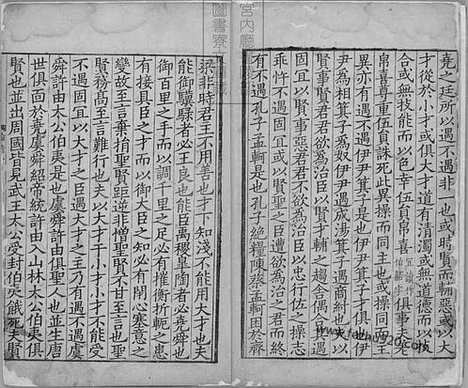 堯之廷所以遇不遇非一也或時賢而輔惡或以大
才從於小才或俱大才道有清濁或無道德而以技
合或無技能而以色幸伍員帛喜俱事夫差
帛喜尊重伍員誅死此異操而同主也或操同而主
異亦有遇不遇伊尹箕子是也伊尹箕子才俱也伊
尹為相箕子為奴伊尹遇成湯箕子遇商紂也夫以
賢事賢君君欲為治臣以賢才輔之趨舍偶合其遇
固宜以賢事惡君君不欲為治臣以忠行佐之操志
乖忤不遇固宜或以賢聖之臣遭欲為治之君而終
有不遇孔子孟軻是也孔子絕糧陳蔡孟軻困於齊
梁非時君王不用善也才下知淺不能用大才也夫
能御驥騄者必王良也能臣禹稷皐陶者必堯舜也
御百里之手而以調千里之足必有摧衡折軛之患
有接具臣之才而以御大臣之知必有閉心塞意之
變故至言棄捐聖賢距逆非憎聖賢不甘至言也聖
賢務高至言難行也夫以大才干小才小才不能受
不遇固宜以大才之臣遇大才之主乃有遇不遇虞
舜許由太公伯夷是也虞舜許由俱聖人也並生唐
世俱面於堯虞舜紹帝統許由入山林太公伯夷俱
賢也並出周國皆見武王太公受封伯夷餓死夫賢
宮内廳
圖書寮